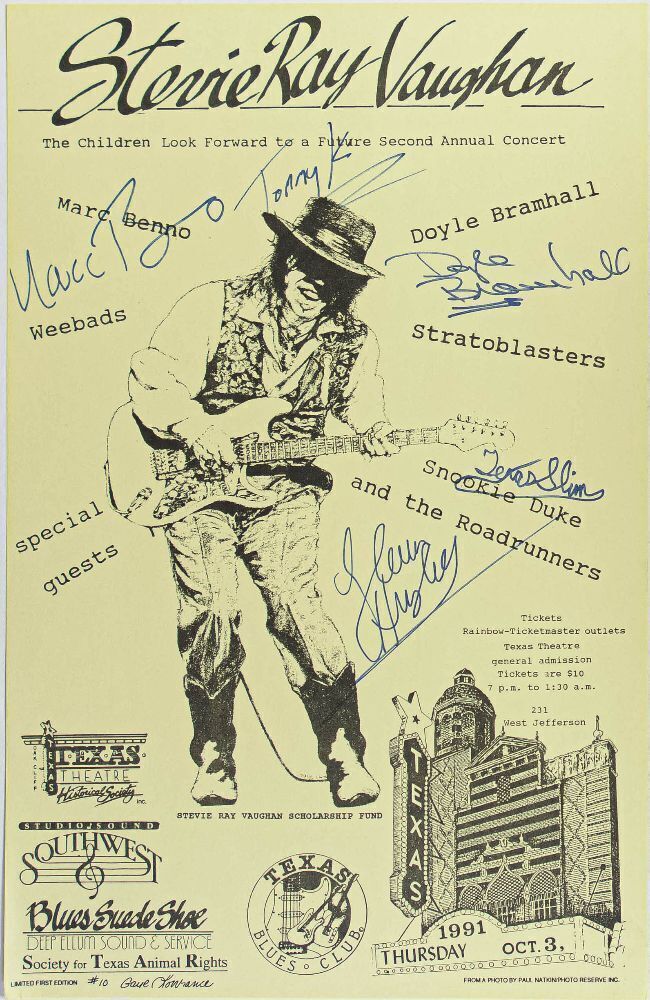 Stevie Ray Vaughan
The Children Look Forward to a Future Second Annual Concert
Tommy K
Marc Benno
Marc Benno
Doyle Bramhall
Doyle Bramhall
Weebads
Stratoblasters
Texas Slim
Snookie Duke
and the Roadrunners
special
guests
Tickets
Rainbow-Ticketmaster outlets
Texas Theatre
general admission
Tickets are $10
7 p.m. to 1:30 a.m.
231
West Jefferson
OAK CLIFF
TEXAS
TEXAS
THEATRE
Historical Society INC.
STEVIE RAY VAUGHAN SCHOLARSHIP FUND
TEXAS
STUDIO SOUND
SOUTHWEST
Blues Suede Shoe
DEEP ELLUM SOUND & SERVICE
Society for Texas Animal Rights
TEXAS
BLUES CLUB
1991
THURSDAY OCT. 3,
LIMITED FIRST EDITION #10
FROM A PHOTO BY PAUL NATKIN/PHOTO RESERVE INC.